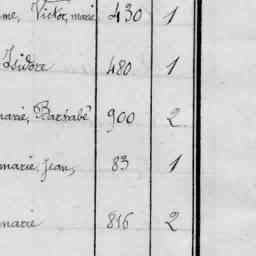 me, Victor, marie 430 1
Isidore 480 1
marie, Barnabé 900 2
marie, Jean, 83 1
marie 816 2